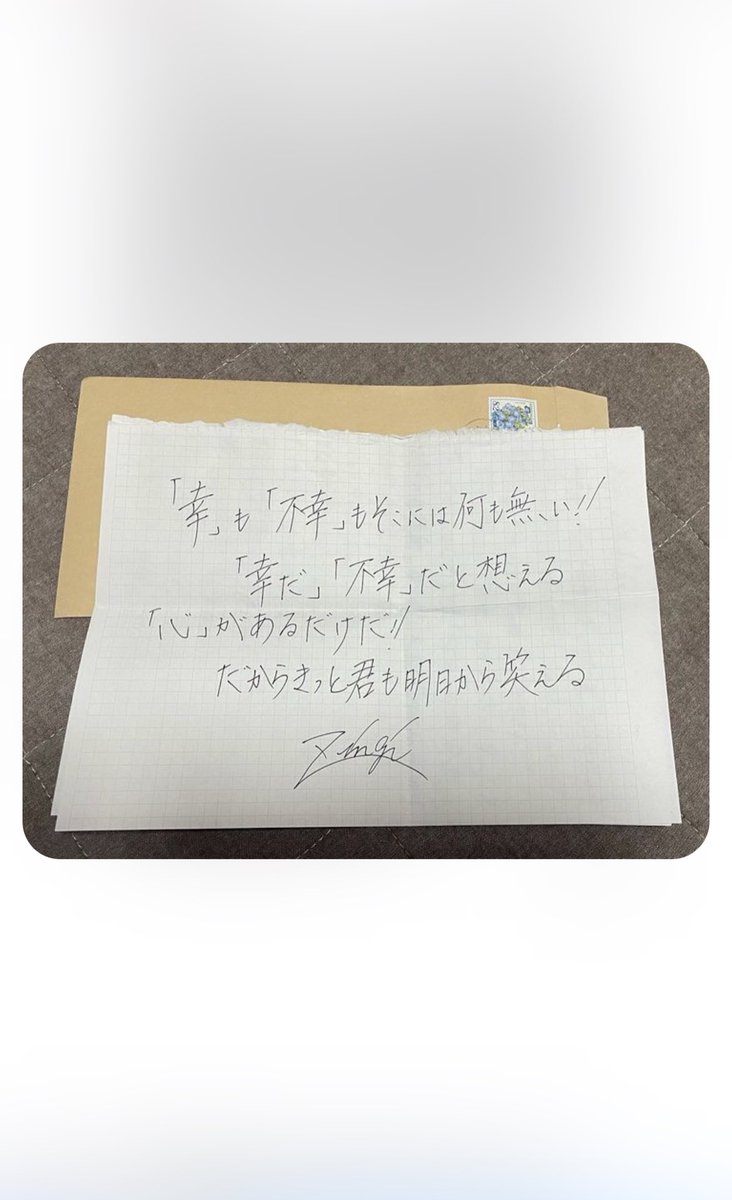 「幸」も「不幸」もそこには何も無い!!
「幸だ」「不幸」だと想える
「心」があるだけだ!!
だからきっと君も明日から笑える